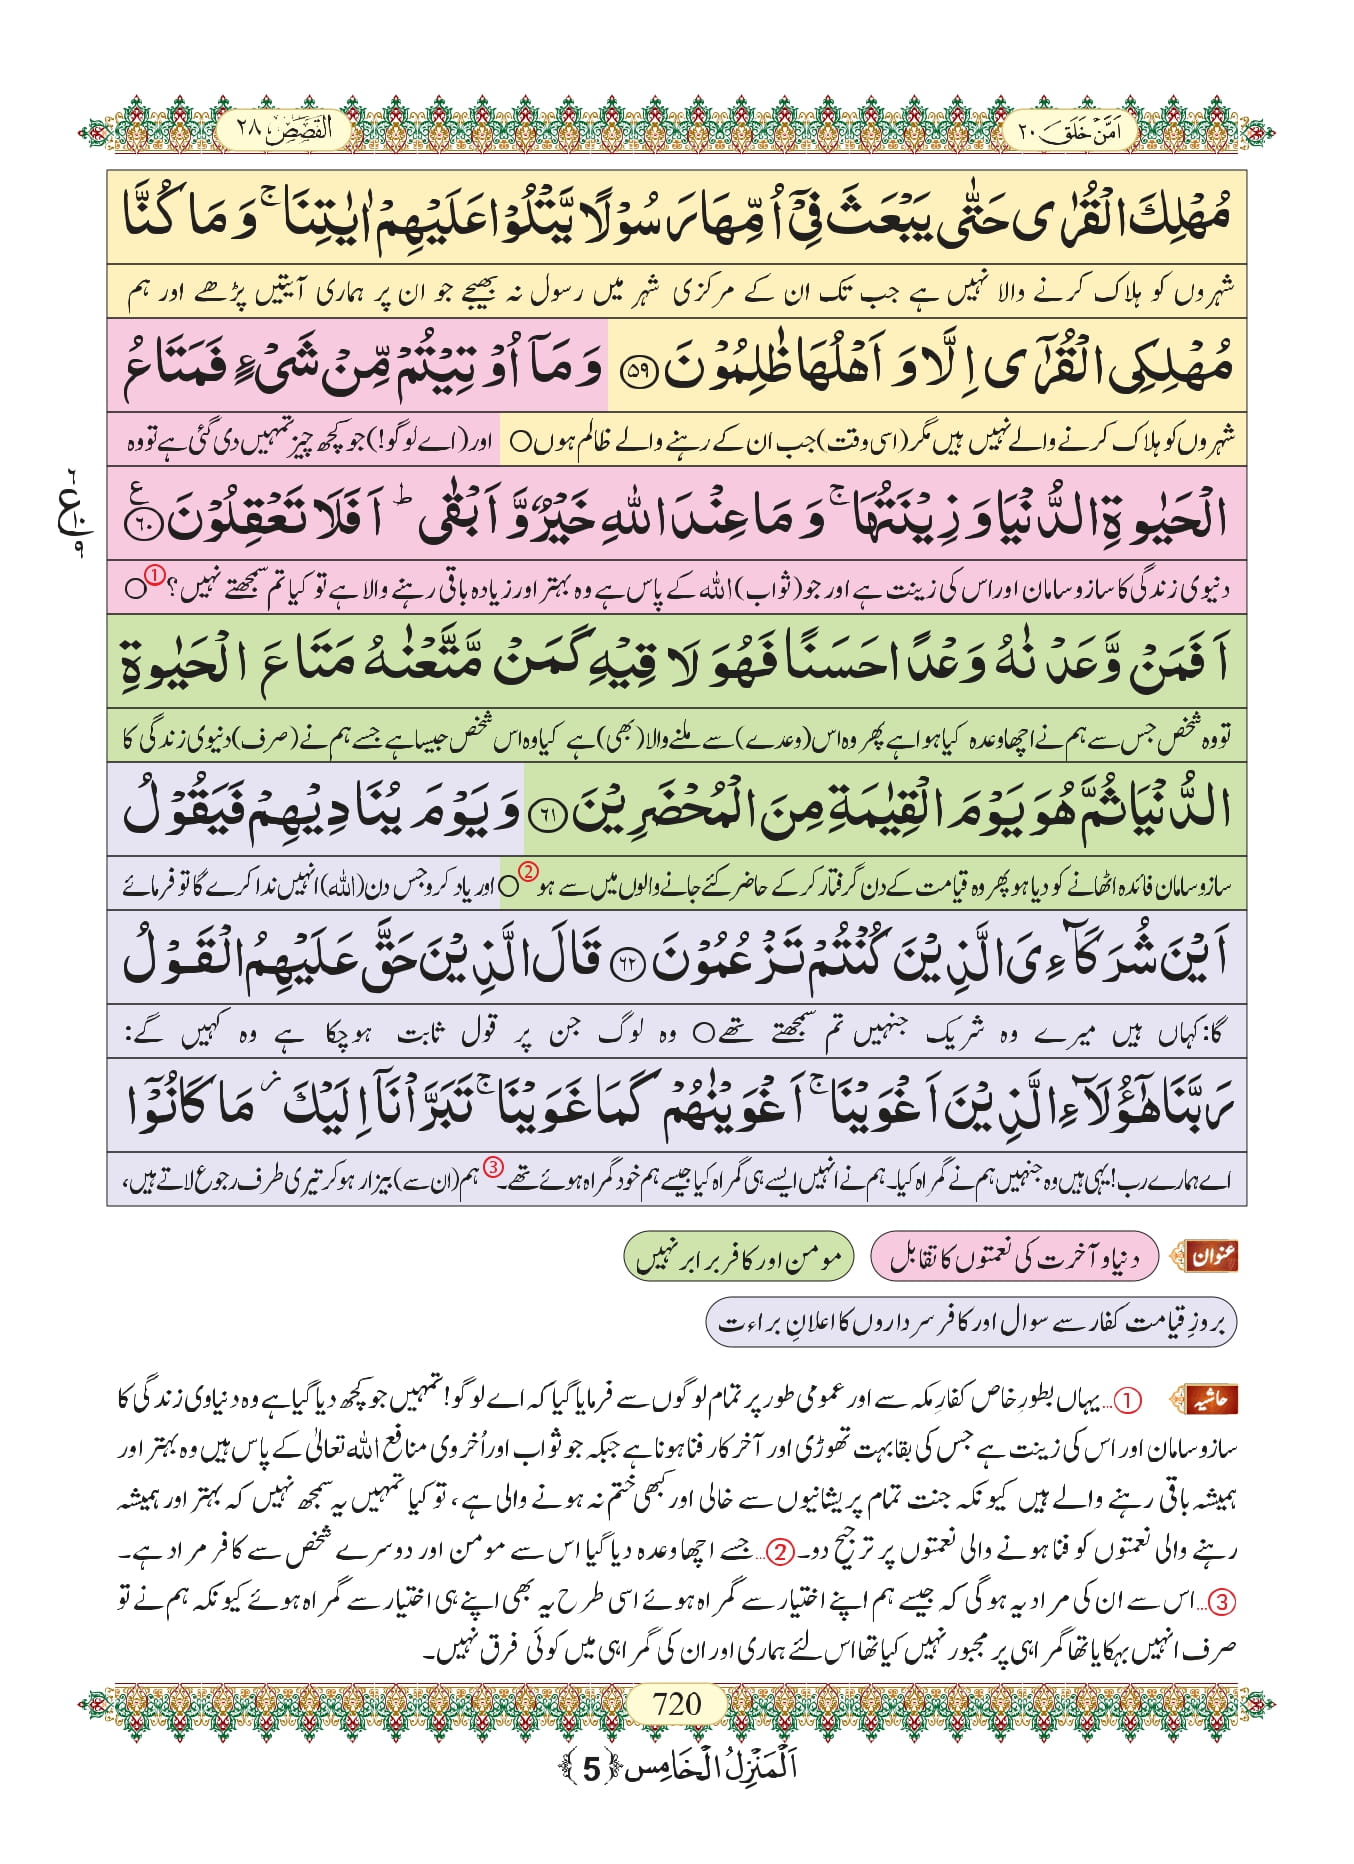 اَمَّنْ خَلَقَ ۲۰
اَلْقَصَص ۲۸
مُهْلِكَ الْقُرٰى حَتّٰى يَبْعَثَ فِيْۤ اُمِّهَا رَسُوْلًا يَّتْلُوْا عَلَيْهِمْ اٰيٰتِنَا ۚ وَ مَا كُنَّا
شہروں کو ہلاک کرنے والا نہیں ہے جب تک ان کے مرکزی شہر میں رسول نہ بھیجے جو ان پر ہماری آیتیں پڑھے اور ہم
مُهْلِكِی الْقُرٰۤى اِلَّا وَ اَهْلُهَا ظٰلِمُوْنَ ﴿۵۹﴾ وَ مَاۤ اُوْتِيْتُمْ مِّنْ شَیْءٍ فَمَتَاعُ
شہروں کو ہلاک کرنے والے نہیں ہیں مگر (اسی وقت) جب ان کے رہنے والے ظالم ہوں○ اور (اے لوگو!) جو کچھ چیز تمہیں دی گئی ہے تو وہ
الْحَيٰوةِ الدُّنْيَا وَ زِيْنَتُهَا ۚ وَ مَا عِنْدَ اللّٰهِ خَيْرٌ وَّ اَبْقٰى ؕ اَفَلَا تَعْقِلُوْنَ ﴿۶۰﴾ ع
ع ۶ ۱۰ ۹
دنیوی زندگی کا ساز و سامان اور اس کی زینت ہے اور جو (ثواب) اللہ کے پاس ہے وہ بہتر اور زیادہ باقی رہنے والا ہے تو کیا تم سمجھتے نہیں؟①○
اَفَمَنْ وَّعَدْنٰهُ وَعْدًا حَسَنًا فَهُوَ لَاقِيْهِ كَمَنْ مَّتَّعْنٰهُ مَتَاعَ الْحَيٰوةِ
تو وہ شخص جس سے ہم نے اچھا وعدہ کیا ہوا ہے پھر وہ اس (وعدے) سے ملنے والا (بھی) ہے کیا وہ اس شخص جیسا ہے جسے ہم نے (صرف) دنیوی زندگی کا
الدُّنْيَا ثُمَّ هُوَ يَوْمَ الْقِيٰمَةِ مِنَ الْمُحْضَرِيْنَ ﴿۶۱﴾ وَ يَوْمَ يُنَادِيْهِمْ فَيَقُوْلُ
ساز و سامان فائدہ اٹھانے کو دیا ہو پھر وہ قیامت کے دن گرفتار کر کے حاضر کئے جانے والوں میں سے ہو②○ اور یاد کرو جس دن (اللہ) انہیں ندا کرے گا تو فرمائے
اَيْنَ شُرَكَآءِیَ الَّذِيْنَ كُنْتُمْ تَزْعُمُوْنَ ﴿۶۲﴾ قَالَ الَّذِيْنَ حَقَّ عَلَيْهِمُ الْقَوْلُ
گا: کہاں ہیں میرے وہ شریک جنہیں تم سمجھتے تھے○ وہ لوگ جن پر قول ثابت ہوچکا ہے وہ کہیں گے:
رَبَّنَا هٰۤؤُلَآءِ الَّذِيْنَ اَغْوَيْنَا ۚ اَغْوَيْنٰهُمْ كَمَا غَوَيْنَا ۚ تَبَرَّاْنَاۤ اِلَيْكَ ؗ مَا كَانُوْۤا
اے ہمارے رب! یہی ہیں وہ جنہیں ہم نے گمراہ کیا۔ ہم نے انہیں ایسے ہی گمراہ کیا جیسے ہم خود گمراہ ہوئے تھے۔③ ہم (ان سے) بیزار ہو کر تیری طرف رجوع لاتے ہیں،
عنوان دنیا و آخرت کی نعمتوں کا تقابل مومن اور کافر برابر نہیں
بروزِ قیامت کفار سے سوال اور کافر سرداروں کا اعلانِ براءت
حاشیہ ①... یہاں بطورِ خاص کفارِ مکہ سے اور عمومی طور پر تمام لوگوں سے فرمایا گیا کہ اے لوگو! تمہیں جو کچھ دیا گیا ہے وہ دنیاوی زندگی کا
ساز و سامان اور اس کی زینت ہے جس کی بقا بہت تھوڑی اور آخر کار فنا ہونا ہے جبکہ جو ثواب اور اُخروی منافع اللہ تعالیٰ کے پاس ہیں وہ بہتر اور
ہمیشہ باقی رہنے والے ہیں کیونکہ جنت تمام پریشانیوں سے خالی اور کبھی ختم نہ ہونے والی ہے، تو کیا تمہیں یہ سمجھ نہیں کہ بہتر اور ہمیشہ
رہنے والی نعمتوں کو فنا ہونے والی نعمتوں پر ترجیح دو۔ ②... جسے اچھا وعدہ دیا گیا اس سے مومن اور دوسرے شخص سے کافر مراد ہے۔
③... اس سے ان کی مراد یہ ہوگی کہ جیسے ہم اپنے اختیار سے گمراہ ہوئے اسی طرح یہ بھی اپنے ہی اختیار سے گمراہ ہوئے کیونکہ ہم نے تو
صرف انہیں بہکایا تھا گمراہی پر مجبور نہیں کیا تھا اس لئے ہماری اور ان کی گمراہی میں کوئی فرق نہیں۔
720
اَلْمَنْزِلُ الْخَامِس ﴿5﴾